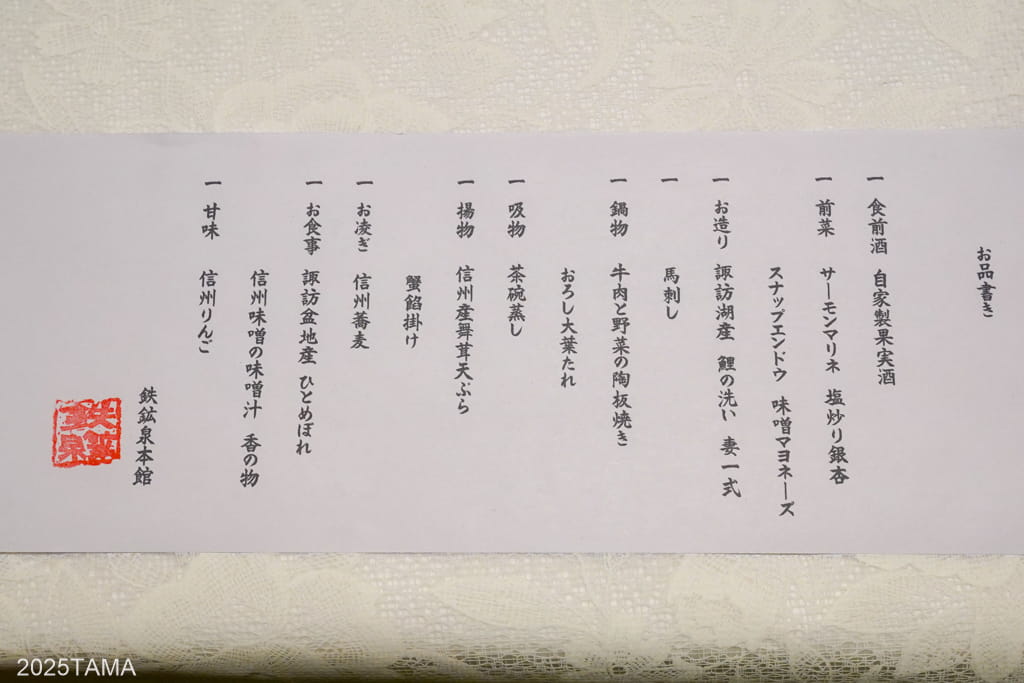 お品書き
一 食前酒 自家製果実酒
一 前菜 サーモンマリネ 塩炒り銀杏
スナップエンドウ 味噌マヨネーズ
一 お造り 諏訪湖産 鯉の洗い 妻一式
一 馬刺し
一 鍋物 牛肉と野菜の陶板焼き
おろし大葉たれ
一 吸物 茶碗蒸し
一 揚物 信州産舞茸天ぷら
蟹餡掛け
一 お凌ぎ 信州蕎麦
一 お食事 諏訪盆地産 ひとめぼれ
信州味噌の味噌汁 香の物
一 甘味 信州りんご
鉄鉱泉本館
2025TAMA